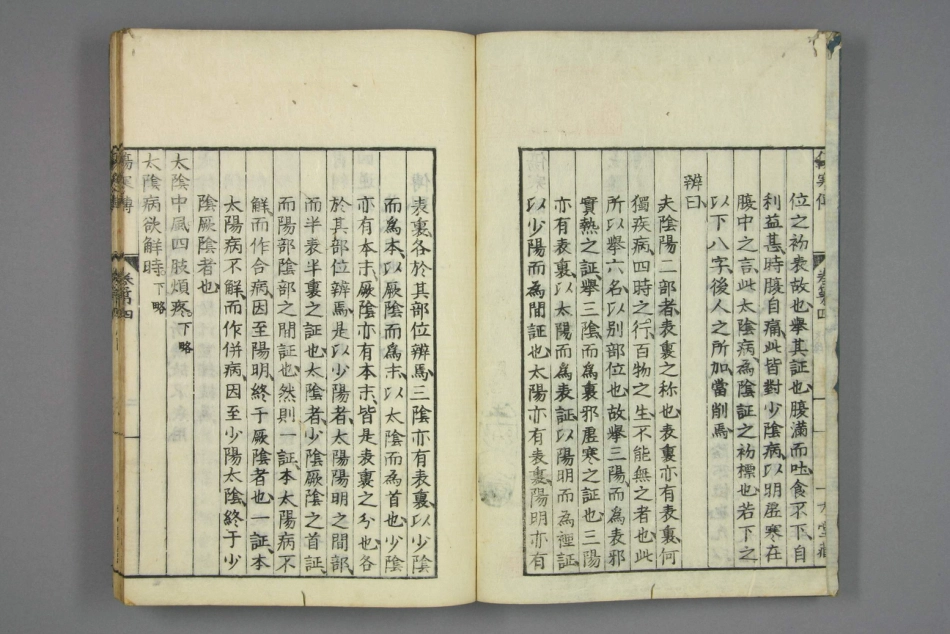 位之初表故也擧其証也腹滿而吐食不下自
利益甚時腹自痛此皆對少陰病以明虛寒在
腹中之言此太陰病爲陰証之初標也若下之
以下八字後人之所加當削焉
辨曰
夫陰陽二部者表裏之称也表裏亦有表裏何
獨疾病四時之行百物之生不能無之者也此
所以擧六名以别部位也故擧三陽而為表邪
實熱之証擧三陰而為裏邪虛寒之証也三陽
亦有表裏以太陽而為表証以陽明而為裡証
以少陽而為間証也太陽亦有表裏陽明亦有
表裏各於其部位辨焉三陰亦有表裏以少陰
而爲本以厥陰而爲末以太陰而為首也少陰
亦有本末厥陰亦有本末皆是表裏之分也各
於其部位辨焉是以少陽者太陽陽明之間部
而半表半裏之証也太陰者少陰厥陰之首証
而陽部陰部之間証也然則一証本太陽病不
解而作合病因至陽明終于厥陰者也一証本
太陽病不解而作併病因至少陽太陰終于少
陰厥陰者也
太陰中風四肢煩疼下略
太陰病欲解時下略